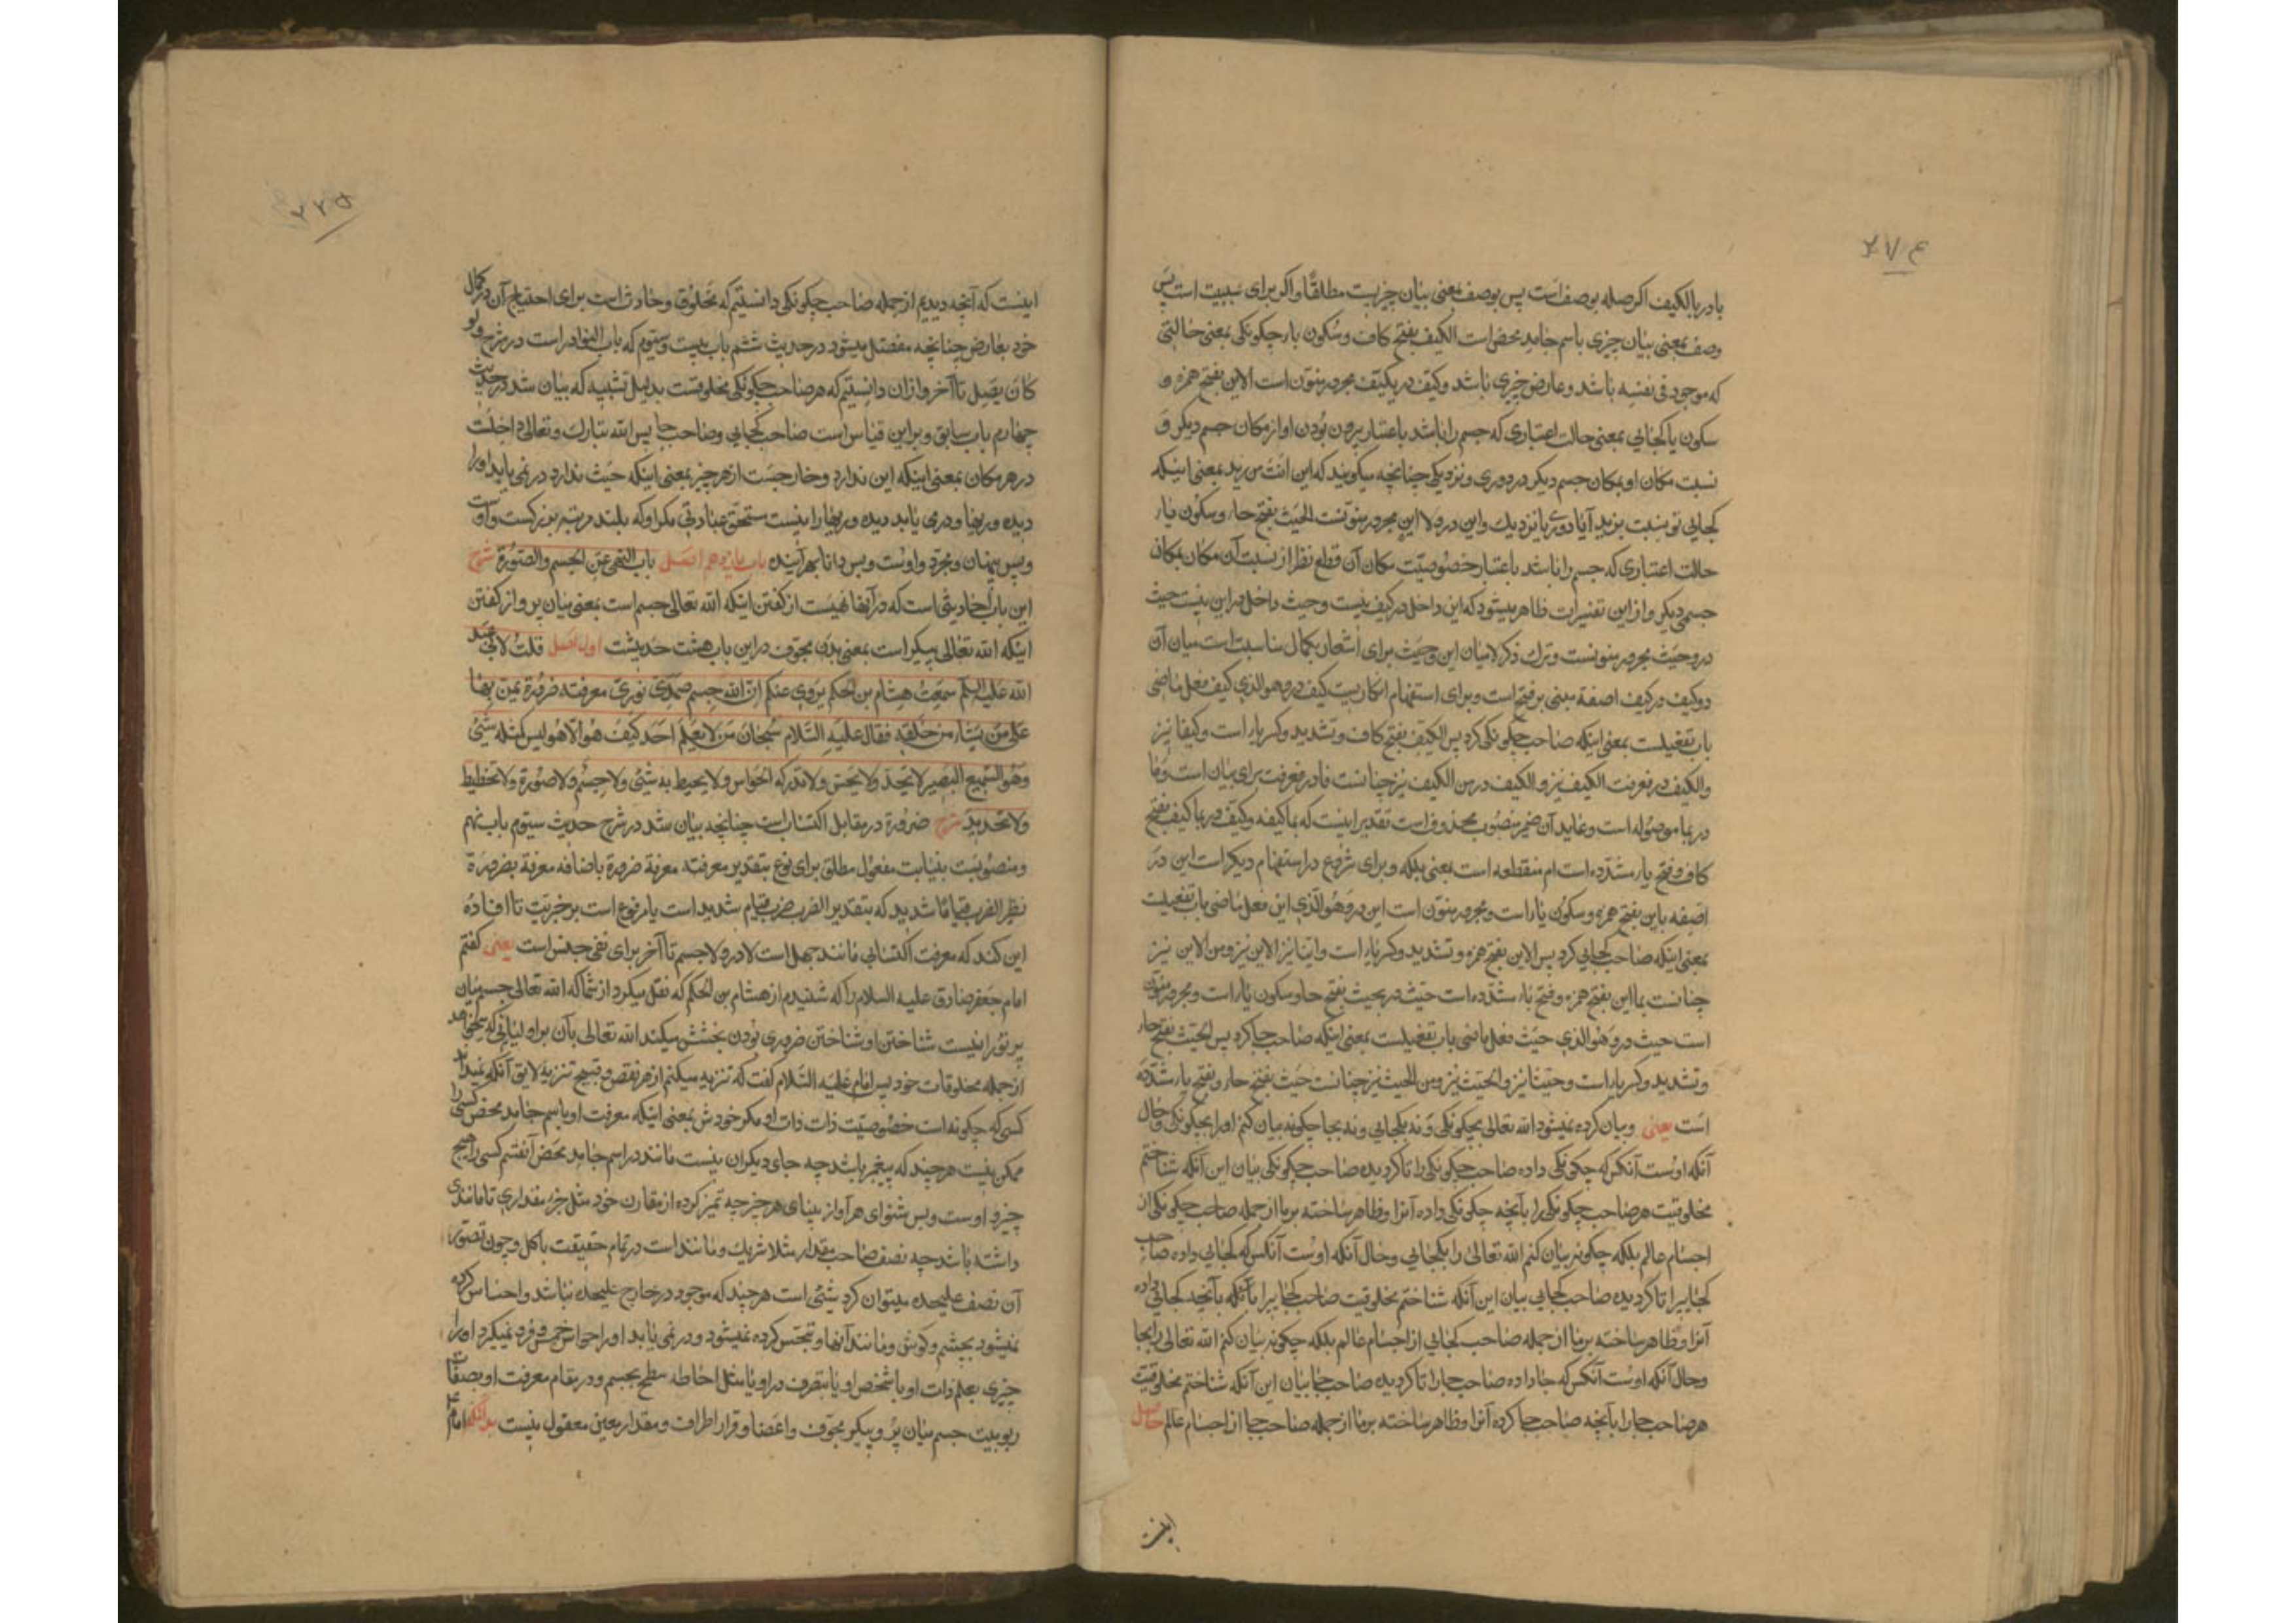 ۲۷۴
با در بالکیف اگر صله بوصف است پس بوصف بمعنی بیان چیزیست مطلقا و اگر برای سببیت است پس
وصف بمعنی بیان چیزی باسم جامد محض است الکیف بفتح کاف و سکون یا چکونکی بمعنی حالتی
که موجود فی نفسه باشد و عارض چیزی باشد و کیف در بکیف مجرور منون است الاین بفتح همزه و
سکون یا کجائی بمعنی حالت اعتباری که جسم را باشد باعتبار بودن او از مکان جسم دیکر و
نسبت مکان او بمکان جسم دیکر در دوری و نزدیکی چنانچه میکویند که این انت من زید بمعنی اینکه
کجایی تو بنسبت بزید آیا دوری یا نزدیک و این در ولا این مجرور منونست الحیث بفتح حاء و سکون یاء
حالت اعتباری که جسم را باشد باعتبار خصوصیت مکان آن قطع نظر از نسبت آن مکان بمکان
جسمی دیکر و از این تفسیرات ظاهر میشود که این داخل در کیف نیست و حیث داخل در این نیست حیث
در و حیث مجرور منونست و ترک ذکر لا میان این و حیث برای اشعار بکمال مناسبت است میان آن
دو کیف در کیف اصفه مبنی بر فتح است و برای استفهام انکاریست کیف در و هو الذی کیف فعل ماضی
باب تفعیلست بمعنی اینکه صاحب چکونکی کرد پس الکیف بفتح کاف و تشدید و کسر یاء است و کیفا نیز
والکیف در فعرفت الکیف نیز و الکیف در من الکیف نیز چنانست فا در فعرفت برای بیان است و ما
در بما موصوله است و عاید آن ضمیر منصوب محذوف است تقدیر اینست که بما کیفه و کیف در بما کیف بفتح
کاف و فتح یاء مشدده است ام منقطعه است بمعنی بلکه و برای شروع در استفهام دیکر است این در
اصفه باین بفتح همزه و سکون یاء است و مجرور منون است این در و هو الذی این فعل ماضی باب تفعیلست
بمعنی اینکه صاحب کجایی کرد پس الاین بفتح همزه و تشدید و کسر یاء است و اینا نیز الاین نیز و من الاین نیز
چنانست بما این بفتح همزه و فتح یاء مشدده است حیث در بحیث بفتح حا و سکون یاء است و مجرور منون
است حیث در و هو الذی حیث فعل ماضی باب تفعیلست بمعنی اینکه صاحب جا کرد پس الحیث بفتح حاء
و تشدید و کسر یاء است و حیثا نیز و الحیث نیز و من الحیث نیز چنانست حیث بفتح حاء و فتح یاء مشدده
است یعنی و بیان کرده نمیشود الله تعالی بچکونکی و نه بکجایی و نه بجا چکونه بیان کنم او را بچکونکی و حال
آنکه اوست آنکس که چکونکی داده صاحب چکونکی را تا کردیده صاحب چکونکی بیان این آنکه شناختم
مخلوقیت هر صاحب چکونکی را بآنچه چکونکی داده آنرا و ظاهر ساخته بر ما از جمله صاحب چکونکی از
اجسام عالم بلکه چکونه بیان کنم الله تعالی را بکجایی و حال آنکه اوست آنکس که کجایی داده صاحب
کجایی را تا کردیده صاحب کجایی بیان این آنکه شناختم مخلوقیت صاحب کجایی را بآنکه بآنچه کجایی داده
آنرا و ظاهر ساخته بر ما از جمله صاحب کجایی از اجسام عالم بلکه چکونه بیان کنم الله تعالی را بجا
و حال آنکه اوست آنکس که جا داده صاحب جا را تا کردیده صاحب جا بیان این آنکه شناختم مخلوقیت
هر صاحب جا را بآنچه صاحب جا کرده آنرا و ظاهر ساخته بر ما از جمله صاحب جا از اجسام عالم حاصل
۲۷۵
اینست که آنچه دیدیم از جمله صاحب چکونکی دانستیم که مخلوق و حادث است برای احتیاج آن در کمال
خود بعارض چنانچه مفصل میشود در حدیث ششم باب بیست و سیوم که باب النوادر است در شرح ولو
کان یصل تا آخر و از ان دانستیم که هر صاحب چکونکی مخلوقست بدلیل تشبیه که بیان شد در حدیث
چهارم باب سابق و بر این قیاس است صاحب کجایی و صاحب جا پس الله تبارک و تعالی داخلست
در هر مکان بمعنی اینکه این ندارد و خارجست از هر چیز بمعنی اینکه حیث ندارد در نمی یابد او را
دیده وریها و در می یابد دیده وریها را نیست مستحق عبادتی مکر او که بلند مرتبه بزرکست و اوست
و بس پنهان و مجرد و اوست و بس دانا بهر آینده باب یازدهم اصل باب النهی عن الجسم والصورة شرح
این باب احادیثی است که در آنها نهیست از کفتن اینکه الله تعالی جسم است بمعنی میان پر و از کفتن
اینکه الله تعالی پیکر است بمعنی بدن مجوف در این باب هشت حدیثست اول اصل قلت لابی عبد
الله علیه السلم سمعت هشام بن الحکم یروی عنکم ان الله جسم صمدی نوری معرفته ضرورة یمن بها
علی من یشاء من خلقه فقال علیه السلام سبحان من لا یعلم احد کیف هو الا هو لیس کمثله شیئ
وهو السمیع البصیر لا یحد ولا یحس ولا تدرکه الحواس ولا یحیط به شیئ ولا جسم ولا صورة ولا تخطیط
ولا تحدید شرح ضرورة در مقابل اکتساب است چنانچه بیان شد در شرح حدیث سیوم باب نهم
و منصوبست بنیابت مفعول مطلق برای نوع بتقدیر معرفته معرفة ضرورة باضافه معرفة بضرورة
نظیر الضرب قیاما شدید که بتقدیر الضرب ضرب قیام شدید است یا مرفوع است بر خبریت تا افاده
این کند که معرفت اکتسابی مانند جهل است لا در ولا جسم تا آخر برای نفی جنس است یعنی کفتم
امام جعفر صادق علیه السلام را که شنیدم از هشام بن الحکم که نقل میکرد از شما که الله تعالی جسم میان
پر نورانیست شناختن او شناختن ضروری بودن بخشش میکند الله تعالی بآن بر اولیائی که میخواهد
از جمله مخلوقات خود پس امام علیه السلام کفت که تنزیه میکنم از هر نقص و قبیح تنزیه لایق آنکه نمیداند
کسی که چکونه است خصوصیت ذات ذات او مکر خودش بمعنی اینکه معرفت او باسم جامد محض کسی را
ممکن نیست هر چند که پیغمبر باشد چه جای دیکران نیست مانند در اسم جامد محض آنقسم کسی را هیچ
چیز و اوست و بس شنوای هر آواز بینای هر چیز چه تمیز کرده از مقارن خود مثل جزء مقداری تا مانندی
داشته باشد چه نصف صاحب مقدار مثلا شریک و مانند است در تمام حقیقت با کل و چون تصور
آن نصف علیحده میتوان کرد شیئ است هر چند که موجود در خارج علیحده نباشد و احساس کرده
نمیشود بچشم و کوش و مانند آنها و تجسس کرده نمیشود و در نمی یابد او را حواس خمس و فرو نمیکیرد او را
چیزی بعلم ذات او یا شخص او یا بتصرف در او یا مثل احاطه سطح بجسم و در مقام معرفت او بصفات
ربوبیت جسم میان پر و پیکر مجوف و اعضا و قرار اطراف و مقدار معین معقول نیست بدانکه امام